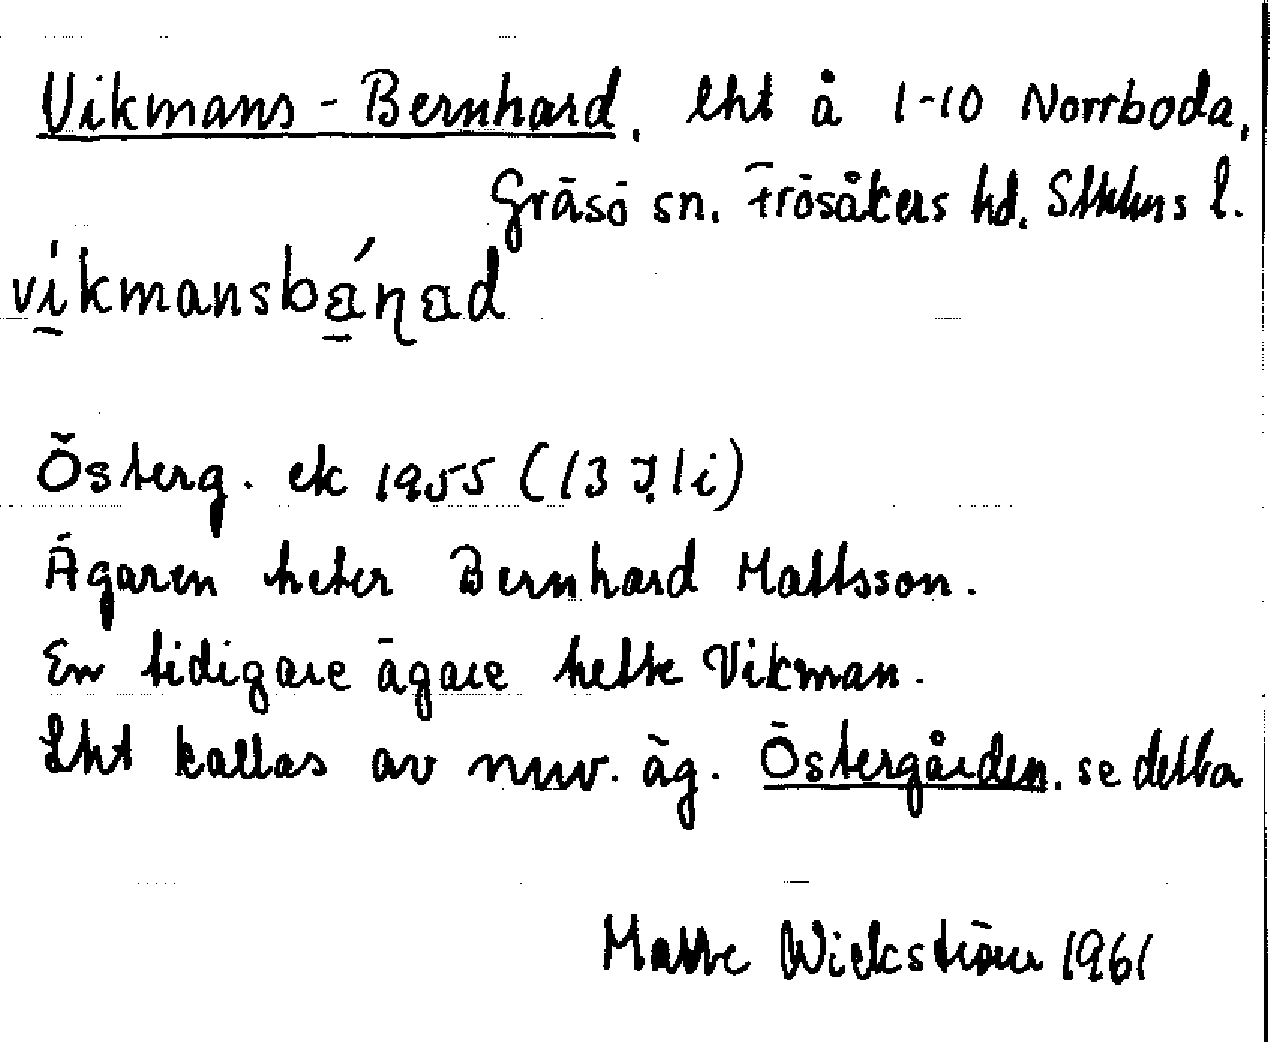 Vikmans-Bernhard, lht å 1-10 Norrboda,
Gräsö sn. Frösåkers hd. Sthlms l.
víkmansbáṇad
Österg. ek 1955 (13 I 1i)
Ägaren heter Bernhard Mattsson.
En tidigare ägare hette Vikman.
Lht kallas av nuv. äg. Östergården, se detta
Matte Wickström 1961